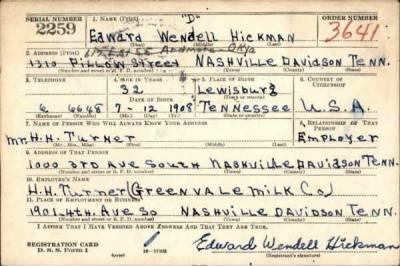 SERIAL NUMBER
1. NAME (Print)
ORDER NUMBER
2259
"D"
Edward Wendell Hickman
3641
(First) (Middle) (Last)
2. ADDRESS (Print)
Okla
1310 Pillow Street NASHVILLE DAVIDSON TENN.
(Number and street or R. F. D. number) (Town) (County) (State)
3. TELEPHONE
4. AGE IN YEARS
5. PLACE OF BIRTH
6. COUNTRY OF CITIZENSHIP
32
Lewisburg
DATE OF BIRTH
6 6648 7-12 1908 Tennessee U.S.A.
7. NAME OF PERSON WHO WILL ALWAYS KNOW YOUR ADDRESS
8. RELATIONSHIP OF THAT PERSON
Mr. H.H. Turner Employer
(Mr., Mrs., Miss) (First) (Middle) (Last)
9. ADDRESS OF THAT PERSON
1000 3RD AVE SOUTH NASHVILLE DAVIDSON TENN.
(Number and street or R. F. D. number) (Town) (County) (State)
10. EMPLOYER'S NAME
H.H. Turner (Greenvale Milk Co)
11. PLACE OF EMPLOYMENT OR BUSINESS
1901 4TH. AVE SO NASHVILLE DAVIDSON TENN.
(Number and street or R. F. D. number) (Town) (County) (State)
I AFFIRM THAT I HAVE VERIFIED ABOVE ANSWERS AND THAT THEY ARE TRUE.
REGISTRATION CARD
D. S. S. Form 1
Edward Wendell Hickman
(Registrant's signature)